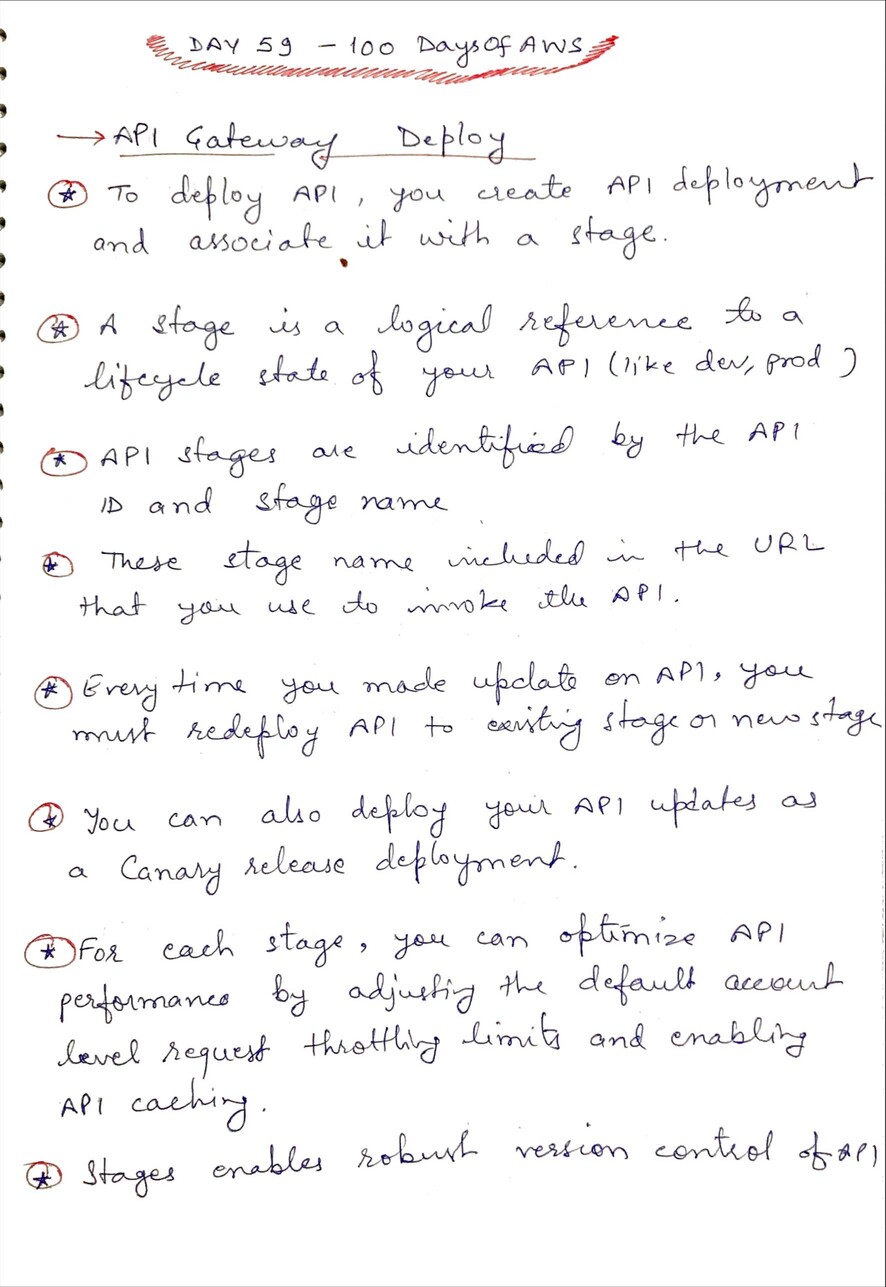 DAY 59 - 100 Days Of AWS
→ API Gateway Deploy
To deploy API, you create API deployment
and associate it with a stage.
A stage is a logical reference to a
lifecycle state of your API (like dev, prod)
API stages are identified by the API
ID and stage name
These stage name included in the URL
that you use to invoke the API.
Every time you made update on API, you
must redeploy API to existing stage or new stage
You can also deploy your API updates as
a Canary release deployment.
For each stage, you can optimize API
performance by adjusting the default account
level request throttling limits and enabling
API caching.
Stages enables robust version control of API